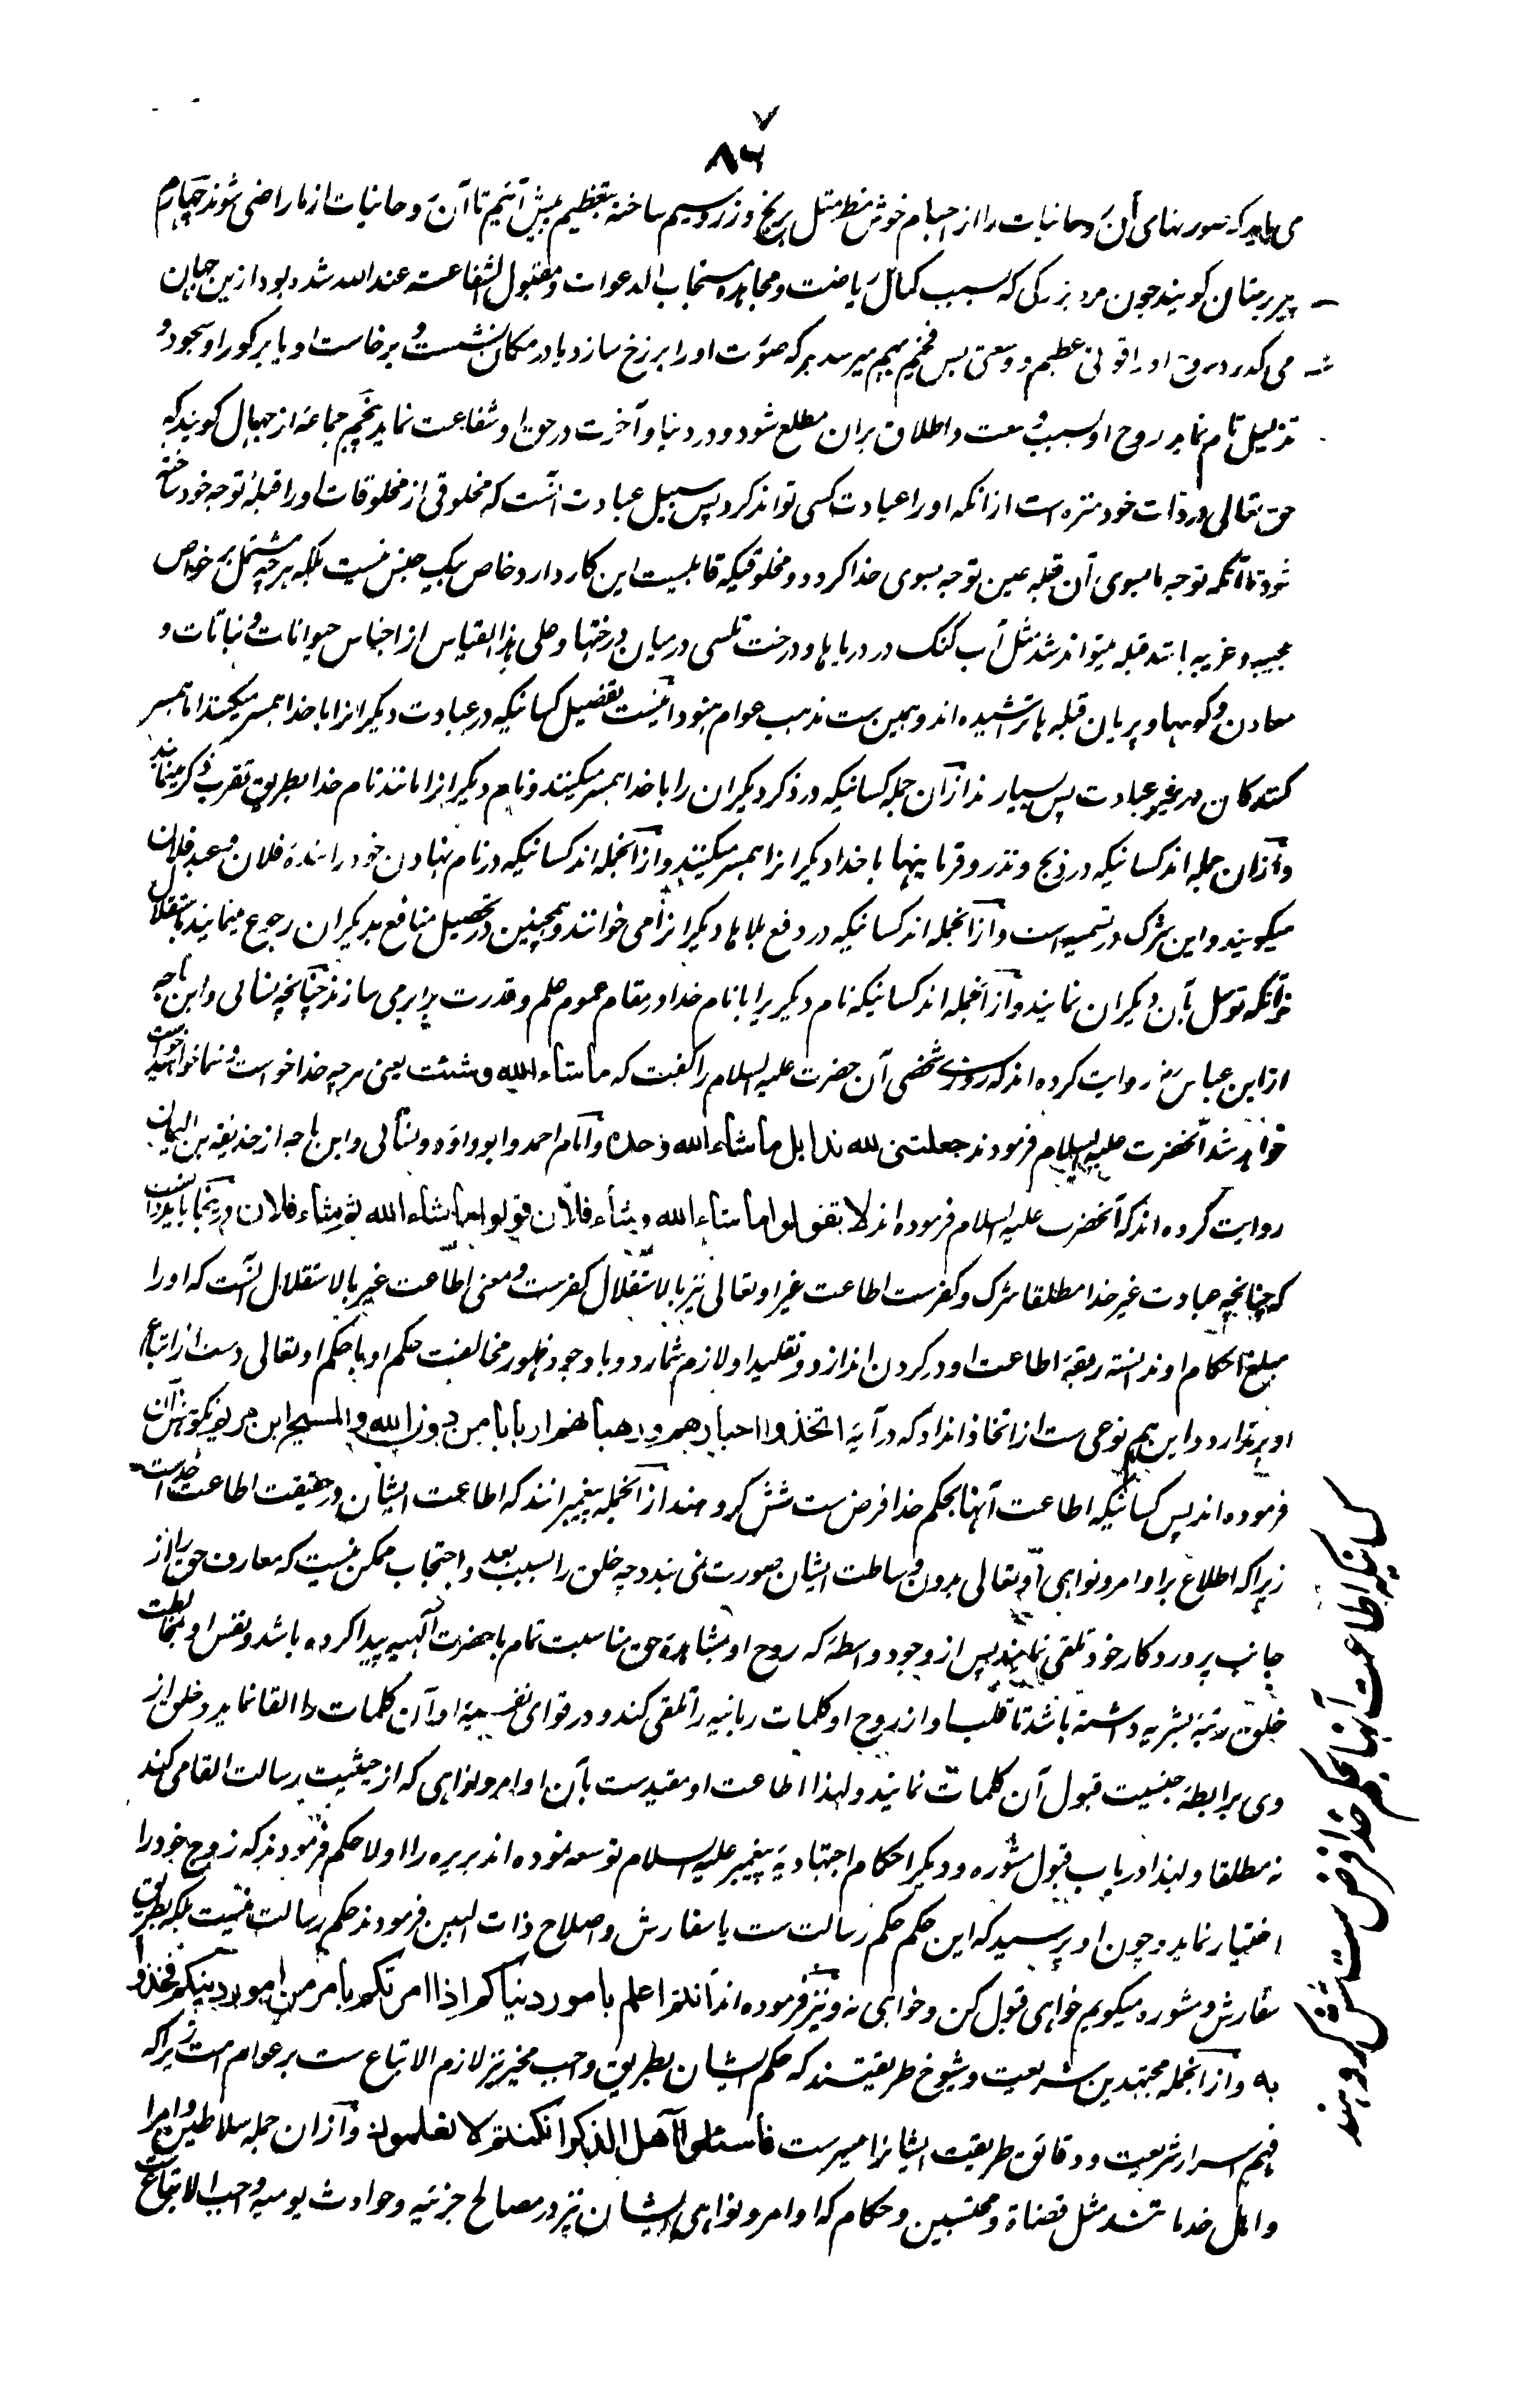 ۸۶
می باید که صورتهای آن روحانیات را از اجسام خوش منظر مثل برنج و زر و سیم ساخته بتعظیم پیش آئیم تا آن روحانیات از ما راضی شوند چهارم
پیر پرستان گویند چون مرد بزرگی که بسبب کمال ریاضت و مجاهده مستجاب الدعوات و مقبول الشفاعت عند الله شده بود ازین جهان
می گذرد روح او را قوتی عظیم و وسعتی بس فخیم بهم میرسد هر که صورت او را برزخ سازد یا در مکان نشست و برخاست او یا بر گور او سجود و
تذلیل تام نماید روح او بسبب وسعت و اطلاق بران مطلع شود و در دنیا و آخرت در حق او شفاعت نماید پنجم جماعه از جهال گویند که
حق تعالی در ذات خود منزه است از انکه او را عبادت کسی تواند کرد پس سبیل عبادت آنست که مخلوقی از مخلوقات او را قبلهٔ توجه خود ساخته
شود تا آنکه توجه ما بسوی آن قبله عین توجه بسوی خدا گردد و مخلوقیکه قابلیت این کار دارد خاص بیک جنس نیست بلکه هر چه مشتمل بر خواص
عجیبه و غریبه باشد قبله میتواند شد مثل آب گنگ در دریاها و درخت تلسی درمیان درختها و علی هذا القیاس از اجناس حیوانات و نباتات و
معادن و کوهها و پریان قبله ها تراشیده اند و همین ست مذهب عوام هنود اینست تفصیل کسانیکه در عبادت دیگرانرا با خدا همسر میکنند اما همسر
کنندگان در غیر عبادت پس بسیارند ازان جمله کسانیکه در ذکر دیگران را با خدا همسر میکنند و نام دیگرانرا مانند نام خدا بطریق تقرب ذکر مینمایند
و ازان جمله اند کسانیکه در ذبح و نذر و قربانیها با خدا دیگرانرا همسر میکنند و از آنجمله اند کسانیکه در نام نهادن خود را بندهٔ فلان و عبد فلان
میگویند و این شرک در تسمیه است و از آنجمله اند کسانیکه در دفع بلاها دیگرانرا می خوانند و همچنین در تحصیل منافع بدیگران رجوع مینمایند باستقلال
نه آنکه توسل بآن دیگران نمایند و از آنجمله اند کسانیکه نام دیگریرا با نام خدا در مقام عموم علم و قدرت برابر می سازند چنانچه نسائی و ابن ماجه
از ابن عباس رض روایت کرده اند که روزی شخصی آن حضرت علیه السلام را گفت که ما شاء الله و شئت یعنی هر چه خدا خواست و شما خواهید خواست
خواهد شد آنحضرت علیه السلام فرمودند جعلتنی لله ندا بل ما شاء الله وحده و امام احمد و ابوداؤد و نسائی و ابن ماجه از حذیفه بن الیمان
روایت کرده اند که آنحضرت علیه السلام فرموده اند لا تقولوا ما شاء الله و شاء فلان قولوا ما شاء الله ثم شاء فلان درینجا باید دانست
که چنانچه عبادت غیر خدا مطلقا شرک و کفرست اطاعت غیر او تعالی نیز بالاستقلال کفرست و معنی اطاعت غیر بالاستقلال آنست که او را
مبلغ احکام او ندانسته ربقهٔ اطاعت او در گردن اندازد و تقلید او لازم شمارد و با وجود ظهور مخالفت حکم او با حکم او تعالی دست از اتباع
او برندارد و این هم نوعی ست از اتخاذ انداد که در آیهٔ اتخذوا احبارهم و رهبانهم اربابا من دون الله و المسیح ابن مریم نکوهش آن
فرموده اند پس کسانیکه اطاعت آنها بحکم خدا فرض ست شش گروهند از آنجمله پیغمبرانند که اطاعت ایشان در حقیقت اطاعت خداست
زیراکه اطلاع بر اوامر و نواهی او تعالی بدون وساطت ایشان صورت نمی بندد چه خلق را بسبب بعد و احتجاب ممکن نیست که معارف حق را از
جانب پروردگار خود تلقی نمایند پس از وجود واسطه که روح او بمشاهدهٔ حق مناسبت تمام با حضرت الهیه پیدا کرده باشد و نفس او بمخالطت
خلق رتبهٔ بشریه داشته باشد تا قلب او از روح او کلمات ربانیه را تلقی کند و در قوای نفسیهٔ او آن کلمات را القا نماید و خلق از
وی برابطهٔ جنسیت قبول آن کلمات نمایند و لهذا اطاعت او مقیدست بآن اوامر و نواهی که از حیثیت رسالت القا می کند
نه مطلقا و لهذا در باب قبول مشوره و دیگر احکام اجتهادیه پیغمبر علیه السلام توسعه نموده اند بریره را اولا حکم فرمودند که زوج خود را
اختیار نماید و چون او پرسید که این حکم حکم رسالت ست یا سفارش و اصلاح ذات البین فرمودند حکم رسالت نیست بلکه بطریق
سفارش و مشوره میگویم خواهی قبول کن و خواهی نه و نیز فرموده اند انتم اعلم بامور دنیاکم اذا امرتکم بامر من امور دینکم فخذوا
به و از آنجمله مجتهدین شریعت و شیوخ طریقتند که حکم ایشان بطریق واجب مخیر نیز لازم الاتباع ست بر عوام امت زیراکه
فهم اسرار شریعت و دقائق طریقت ایشانرا میسرست فاسئلوا اهل الذکر ان کنتم لا تعلمون و ازان جمله سلاطین و امرا
و اهل خدمات مثل قضاة و محتسبین و حکام که اوامر و نواهی ایشان نیز در مصالح جزئیه و حوادث یومیه واجب الاتباع ست
کسانیکه اطاعت آنها بحکم خدا فرض ست شش گروهند